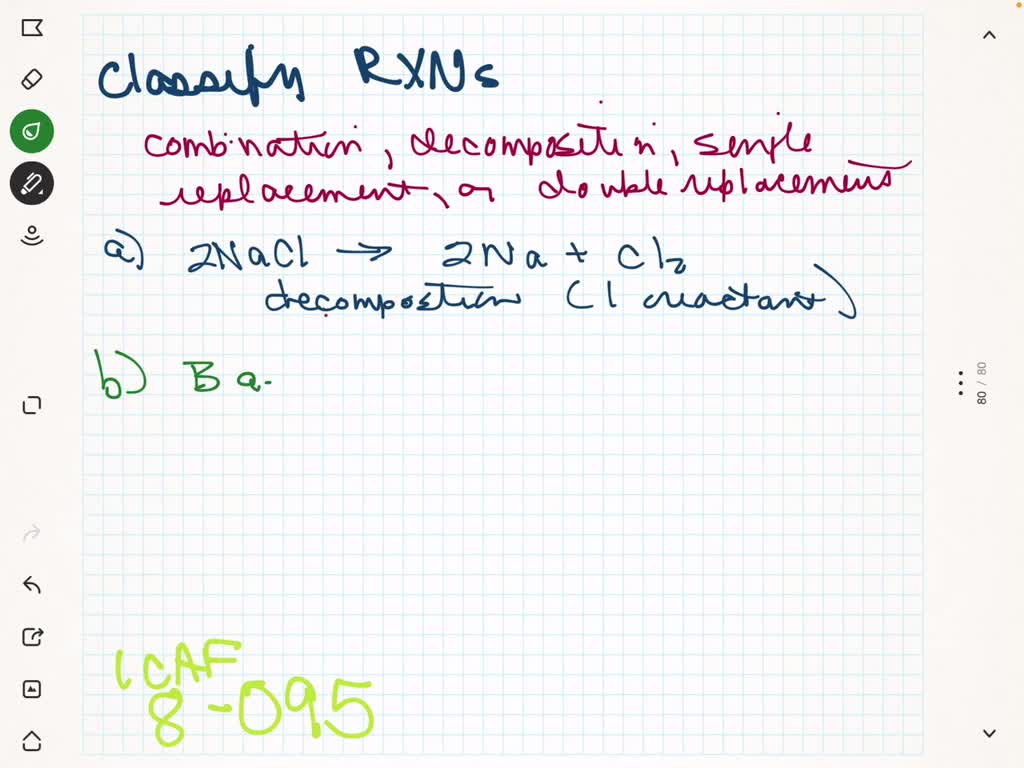 Classify RXNs
combination, decomposition, single
replacement, or double replacement
a) 2NaCl → 2Na + Cl₂
decompostion (1 reactant)
b) Ba
LCAF
8-095
80 / 80